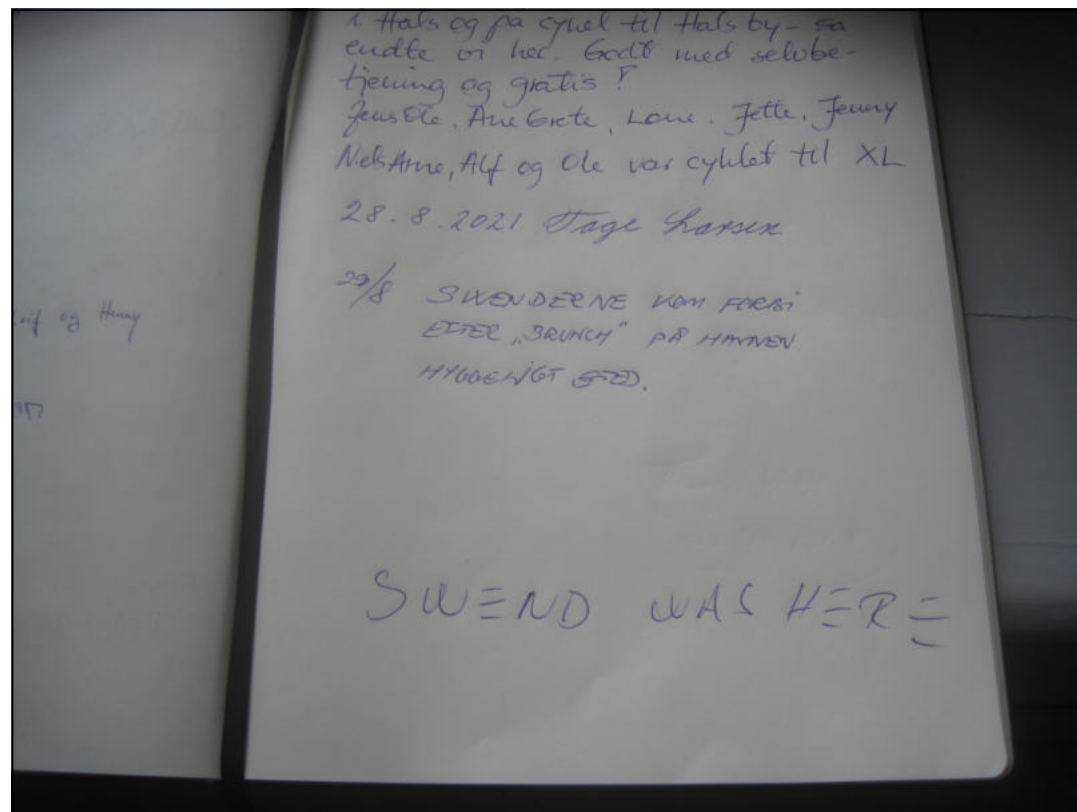 eif og Henny
i Hals og på cykel til Hals by - så
endte vi her. Godt med selvbe-
tjening og gratis!
Jens Ole, Ane Grete, Lone, Jette, Jenny
Niels Arne, Alf og Ole var cyklet til XL
28.8.2021 Tage Larsen
29/8 SWENDERNE KOM FORBI
EFTER „BRUNCH" PÅ HAVNEN
HYGGELIGT STED.
SWEND WAS HERE